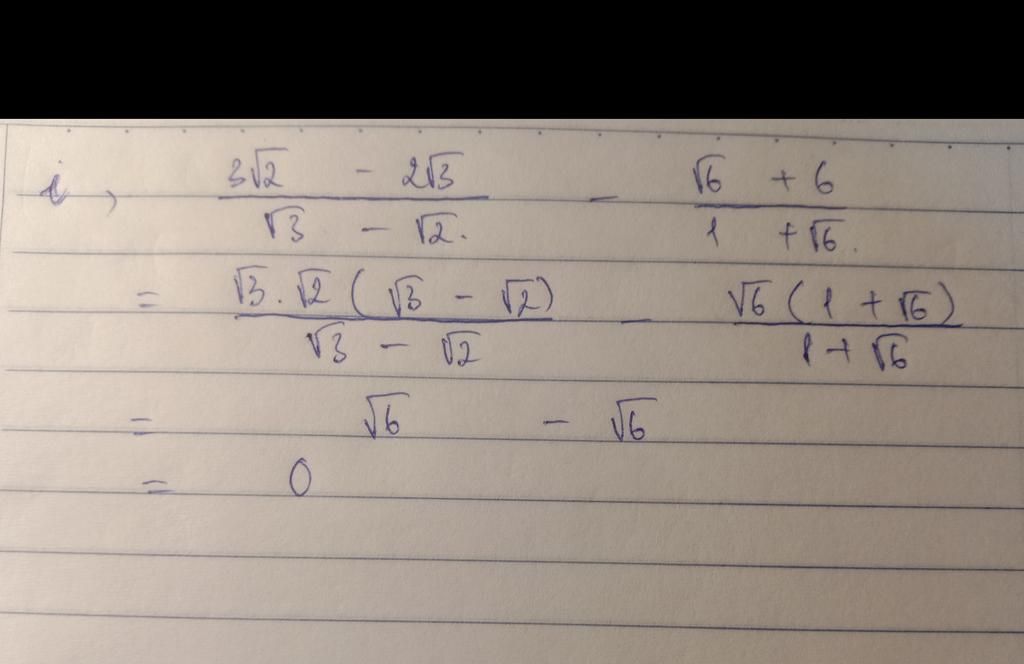 i, (3√2 - 2√3)/(√3 - √2.) - (√6 + 6)/(1 + √6.)
= (√3 . √2 (√3 - √2))/(√3 - √2) - (√6 (1 + √6))/(1 + √6)
= √6 - √6
= 0